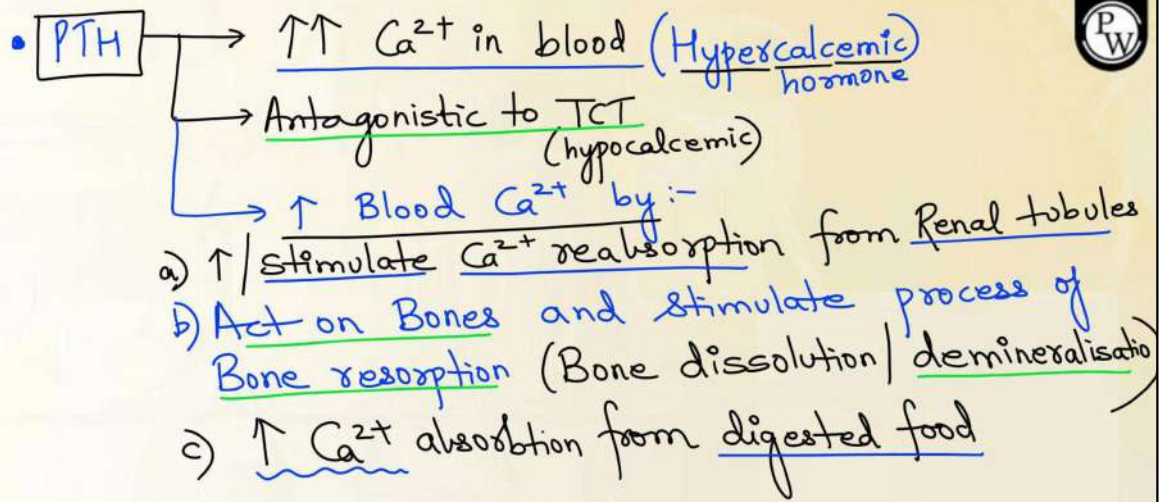 • PTH → ↑↑ Ca²⁺ in blood (Hypercalcemic)
hormone
PW
→ Antagonistic to TCT
(hypocalcemic)
→ ↑ Blood Ca²⁺ by :-
a) ↑ / stimulate Ca²⁺ reabsorption from Renal tubules
b) Act on Bones and stimulate process of
Bone resorption (Bone dissolution / demineralisatio)
c) ↑ Ca²⁺ absorbtion from digested food